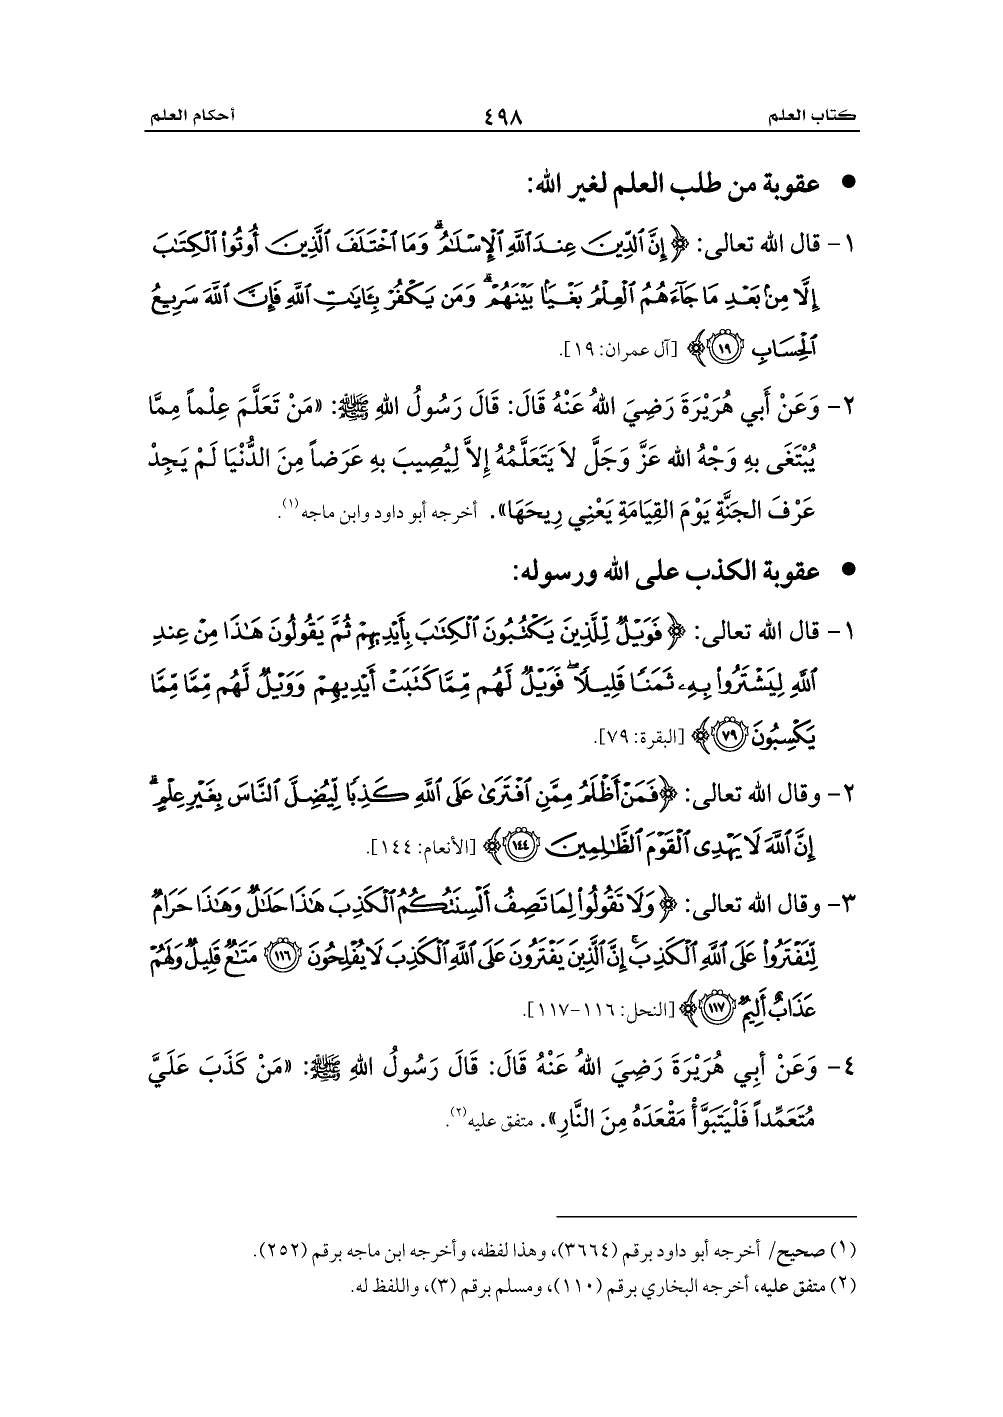 كتاب العلم ٤٩٨ أحكام العلم
● عقوبة من طلب العلم لغير الله:
١- قال الله تعالى: ﴿إِنَّ ٱلدِّينَ عِندَ ٱللَّهِ ٱلْإِسْلَٰمُ ۗ وَمَا ٱخْتَلَفَ ٱلَّذِينَ أُوتُوا۟ ٱلْكِتَٰبَ
إِلَّا مِنۢ بَعْدِ مَا جَآءَهُمُ ٱلْعِلْمُ بَغْيًۢا بَيْنَهُمْ ۗ وَمَن يَكْفُرْ بِـَٔايَٰتِ ٱللَّهِ فَإِنَّ ٱللَّهَ سَرِيعُ
ٱلْحِسَابِ ١٩﴾ [آل عمران: ١٩].
٢- وَعَنْ أَبي هُرَيْرَةَ رَضِيَ اللهُ عَنْهُ قَالَ: قَالَ رَسُولُ اللهِ ﷺ: «مَنْ تَعَلَّمَ عِلْماً مِمَّا
يُبْتَغَى بهِ وَجْهُ الله عَزَّ وَجَلَّ لاَ يَتَعَلَّمُهُ إلاَّ لِيُصِيبَ بهِ عَرَضاً مِنَ الدُّنْيَا لَمْ يَجِدْ
عَرْفَ الجَنَّةِ يَوْمَ القِيَامَةِ يَعْنِي رِيحَهَا». أخرجه أبو داود وابن ماجه(١).
● عقوبة الكذب على الله ورسوله:
١- قال الله تعالى: ﴿فَوَيْلٌ لِّلَّذِينَ يَكْتُبُونَ ٱلْكِتَٰبَ بِأَيْدِيهِمْ ثُمَّ يَقُولُونَ هَٰذَا مِنْ عِندِ
ٱللَّهِ لِيَشْتَرُوا۟ بِهِۦ ثَمَنًا قَلِيلًا ۖ فَوَيْلٌ لَّهُم مِّمَّا كَتَبَتْ أَيْدِيهِمْ وَوَيْلٌ لَّهُم مِّمَّا
يَكْسِبُونَ ٧٩﴾ [البقرة: ٧٩].
٢- وقال الله تعالى: ﴿فَمَنْ أَظْلَمُ مِمَّنِ ٱفْتَرَىٰ عَلَى ٱللَّهِ كَذِبًا لِّيُضِلَّ ٱلنَّاسَ بِغَيْرِ عِلْمٍ ۗ
إِنَّ ٱللَّهَ لَا يَهْدِى ٱلْقَوْمَ ٱلظَّٰلِمِينَ ١٤٤﴾ [الأنعام: ١٤٤].
٣- وقال الله تعالى: ﴿وَلَا تَقُولُوا۟ لِمَا تَصِفُ أَلْسِنَتُكُمُ ٱلْكَذِبَ هَٰذَا حَلَٰلٌ وَهَٰذَا حَرَامٌ
لِّتَفْتَرُوا۟ عَلَى ٱللَّهِ ٱلْكَذِبَ ۚ إِنَّ ٱلَّذِينَ يَفْتَرُونَ عَلَى ٱللَّهِ ٱلْكَذِبَ لَا يُفْلِحُونَ ١١٦ مَتَٰعٌ قَلِيلٌ وَلَهُمْ
عَذَابٌ أَلِيمٌ ١١٧﴾ [النحل: ١١٦-١١٧].
٤- وَعَنْ أَبِي هُرَيْرَةَ رَضِيَ اللهُ عَنْهُ قَالَ: قَالَ رَسُولُ اللهِ ﷺ: «مَنْ كَذَبَ عَلَيَّ
مُتَعَمِّداً فَلْيَتَبَوَّأْ مَقْعَدَهُ مِنَ النَّارِ». متفق عليه(٢).
(١) صحيح/ أخرجه أبو داود برقم (٣٦٦٤)، وهذا لفظه، وأخرجه ابن ماجه برقم (٢٥٢).
(٢) متفق عليه، أخرجه البخاري برقم (١١٠)، ومسلم برقم (٣)، واللفظ له.